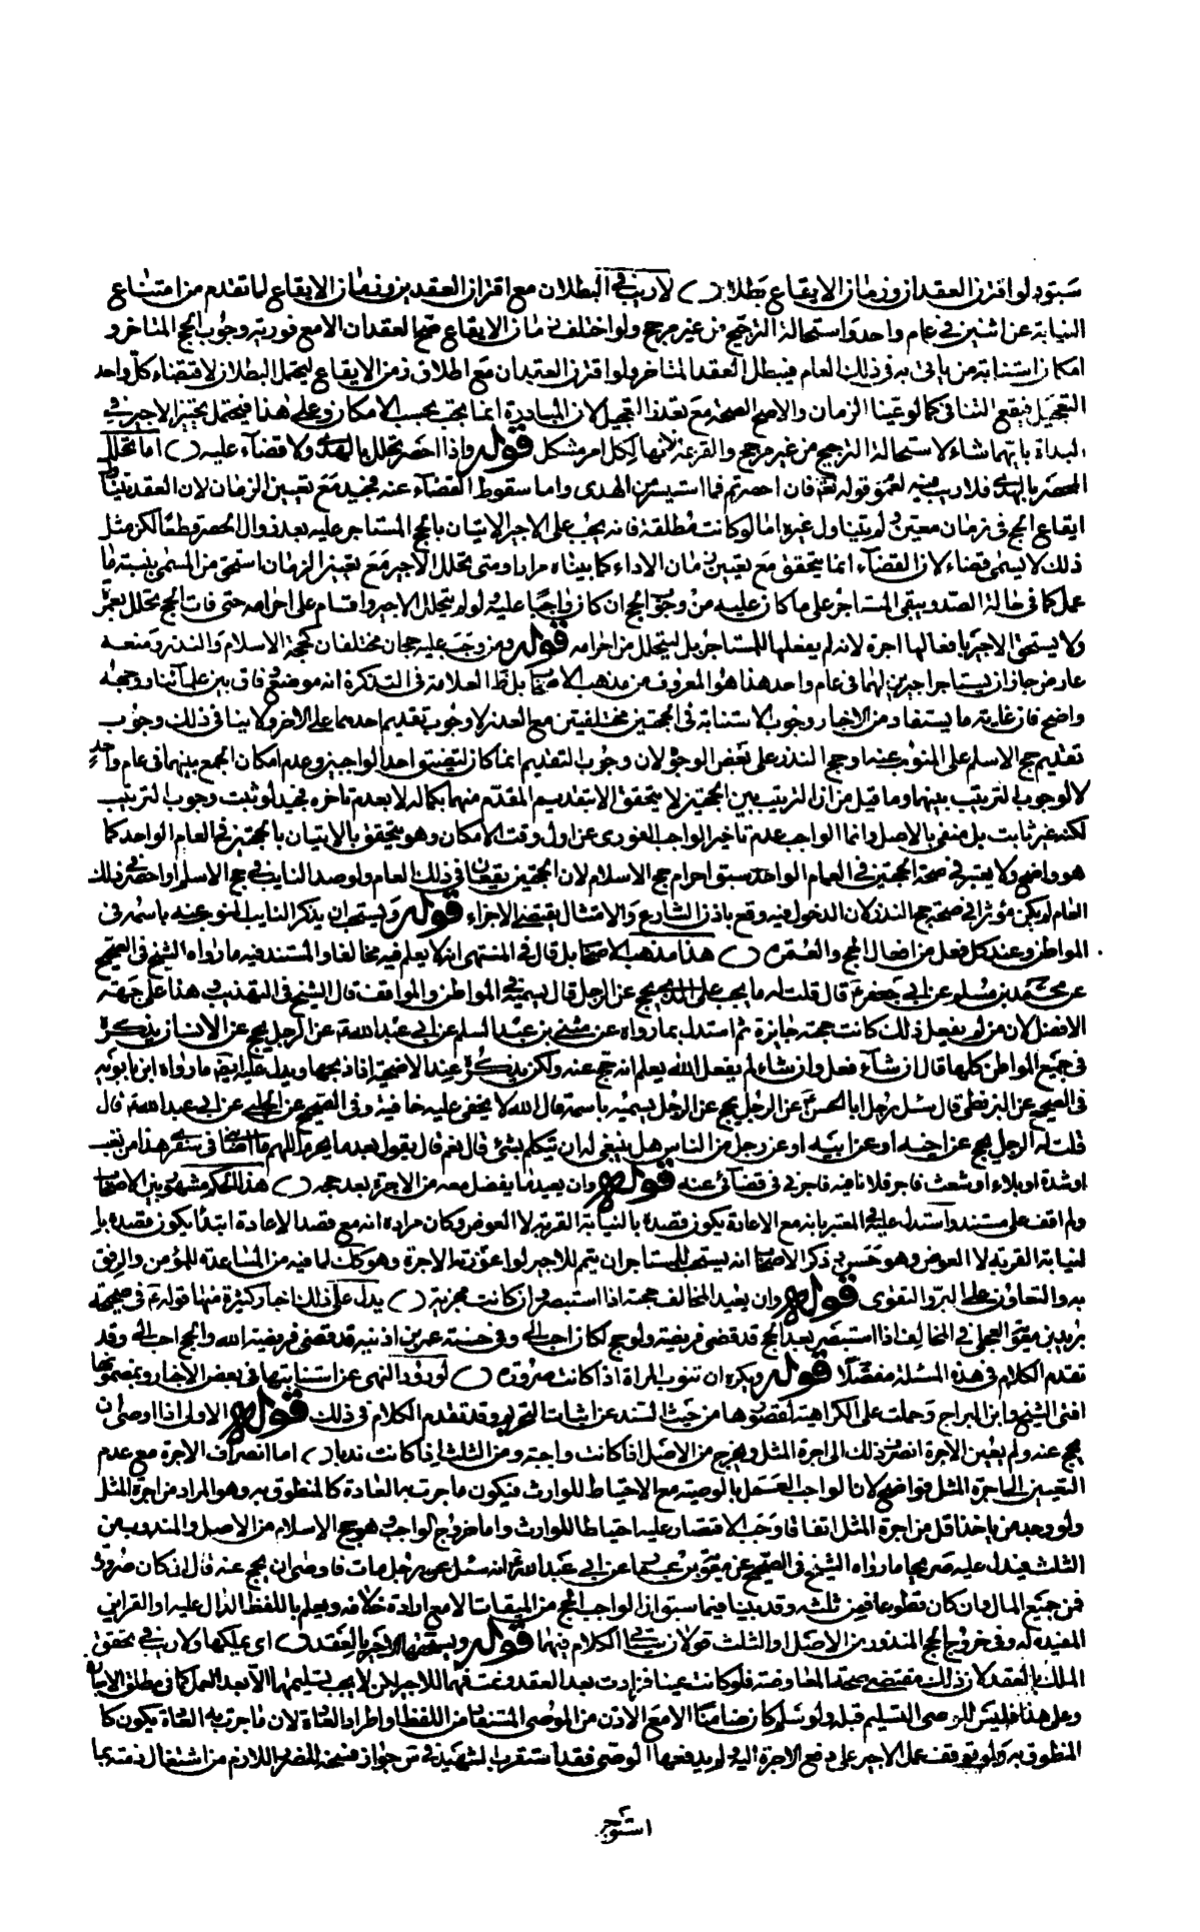 لو اقترن العقدان وزمان الايقاع بطلا لا ريب في البطلان مع اقتران العقدين وزمان الايقاع لما تقدم من امتناع
النيابة عن اثنين في عام واحد واستحالة الترجيح من غير مرجح ولو اختلف زمان الايقاع صح العقدان الا مع فورية وجوب الحج المتاخر و
امكان استنابة من ياتى به في ذلك العام فيبطل العقد المتاخر ولو اقترن العقدان مع اطلاق زمن الايقاع احتمل البطلان لاقتضاء كل واحد
التعجيل فيقع التنافى كما لو عينا الزمان والاصح الصحة مع تعدد التعجيل لان المبادرة انما يجب بحسب الامكان وعلى هذا فيحتمل تخير الاجير في
البداة بايهما شاء لاستحالة الترجيح من غير مرجح والقرعة لانها لكل امر مشكل قوله واذا احصر تحلل بالهدى ولا قضاء عليه اما تحلل
المحصر بالهدى فلا ريب فيه لعموم قوله تعالى فان احصرتم فما استيسر من الهدى واما سقوط القضاء عنه فجيد مع تعيين الزمان لان العقد تناول
ايقاع الحج في زمان معين ولم يتناول غيره اما لو كانت مطلقة فانه يجب على الاجير الاتيان بالحج المستاجر عليه بعد زوال الحصر قطعا لكن مثل
ذلك لا يسمى قضاء لان القضاء انما يتحقق مع تعيين زمان الاداء كما بيناه مرارا ومتى تحلل الاجير مع تعين الزمان استحق من المسمى بنسبة ما
عمل كما في حالة الصد ويبقى المستاجر على ما كان عليه من وجوب الحج ان كان واجبا عليه ولو لم يتحلل الاجير واقام على احرامه حتى فات الحج تحلل بعمرة
ولا يستحق الاجير بافعالها اجرة لانه لم يفعلها للمستاجر بل ليتحلل من احرامه قوله ومن وجب عليه حجان مختلفان كحجة الاسلام والنذر ومنعه
عارض جاز ان يستاجر اجيرين لهما في عام واحد هذا هو المعروف من مذهب الاصحاب بل ظ العلامة في التذكرة انه موضع وفاق بين علمائنا ووجهه
واضح فان غاية ما يستفاد من الاخبار وجوب الاستنابة في الحجتين مختلفتين مع العذر لا وجوب تقديم احدهما على الاخر ولا ينافى ذلك وجوب
تقديم حج الاسلم على المنوب عنه وحج النذر على بعض الوجوه لان وجوب التقديم انما كان لتضيق احد الواجبين وعدم امكان الجمع بينهما في عام واحد
لا لوجوب الترتيب بينهما وما قيل من ان الترتيب بين الحجتين لا يتحقق الا بتقديم المقدم منهما بكماله لا بعدم تاخره فجيد لو ثبت وجوب الترتيب
لكنه غير ثابت بل منفى بالاصل وانما الواجب عدم تاخير الواجب الفورى عن اول وقت الامكان وهو يتحقق بالاتيان بالحجتين في العام الواحد كما
هو واضح ولا يعتبر في صحة الحجتين في العام الواحد سبق احرام حج الاسلام لان الحجتين يقعان في ذلك العام ولو صد النايب في حج الاسلم او احصر في ذلك
العام لم يكن مؤثرا في صحة حج النذر لان الدخول فيه وقع باذن الشارع والامتثال يقتضى الاجزاء قوله ويستحب ان يذكر النايب المنوب عنه باسمه في
المواطن وعند كل فعل من افعال الحج والعمرة هذا مذهب الاصحاب بل قال في المنتهى انه لا يعلم فيه مخالفا والمستند فيه ما رواه الشيخ في الصحيح
عن محمد بن مسلم عن ابي جعفر ع قال قلت له ما يجب على الذى يحج عن الرجل قال يسميه في المواطن والمواقف قال الشيخ في التهذيب هذا على جهة
الافضل لان من لم يفعل ذلك كانت حجته جايزة ثم استدل بما رواه عن مثنى بن عبد السلم عن ابي عبد الله ع عن الرجل يحج عن الانسان يذكره
في جميع المواطن كلها قال ان شاء فعل وان شاء لم يفعل الله يعلم انه حج عنه ولكن يذكره عند الاضحية اذا ذبحها ويدل عليه ايضا ما رواه ابن بابويه
في الصحيح عن البزنطى قال سئل رجل ابا الحسن ع عن الرجل يحج عن الرجل يسميه باسمه قال الله لا يخفى عليه خافية وفي الصحيح عن الحلبى عن ابي عبد الله ع قال
قلت له الرجل يحج عن اخيه او عن ابيه او عن رجل من الناس هل ينبغى له ان يتكلم بشئ قال نعم قال يقول بعد ما يحرم اللهم ما اصابنى في سفرى هذا من تعب
او شدة او بلاء او شعث فاجر فلانا فيه فاجرنى في قضائى عنه قوله وان يعيد ما يفضل معه من الاجرة بعد حجه هذا الحكم مشهور بين الاصحاب
ولم اقف على مستند واستدل عليه في المعتبر بانه مع الاعادة يكون قصده بالنيابة القربة لا العوض وكان مراده انه مع قصد الاعادة ابتداء يكون قصده با
لنيابة القربة لا العوض وهو حسن وذكر الاصحاب انه يستحب للمستاجر ان يتم للاجير لو اعوزته الاجرة وهو كك لما فيه من المساعدة للمؤمن والرفق
به والتعاون على البر والتقوى قوله وان يعيد المخالف حجته اذا استبصر وان كانت مجزية يدل على ذلك اخبار كثيرة منها قوله ع في صحيحة
بريد بن معوية العجلى في المخالف اذا استبصر بعد الحج قد قضى فريضة ولو حج لكان احب الى وفي حسنة عمر بن اذينة قد قضى فريضة الله والحج احب الى وقد
تقدم الكلام في هذه المسئلة مفصلا قوله ويكره ان تنوب المراة اذا كانت صرورة لورود النهى عن استنابتها في بعض الاخبار وبمضمونها
افتى الشيخ وابن البراج وحملت على الكراهية لقصورها من حيث السند عن اثبات التحريم وقد تقدم الكلام في ذلك قوله الاولى اذا اوصى ان
يحج عنه ولم يعين الاجرة انصرف ذلك الى اجرة المثل ويخرج من الاصل اذا كانت واجبة ومن الثلث اذا كانت ندبا اما انصراف الاجرة مع عدم
التعيين الى اجرة المثل فواضح لان الواجب العمل بالوصية مع الاحتياط للوارث فيكون ما جرت به العادة كالمنطوق به وهو المراد من اجرة المثل
ولو وجد من ياخذ اقل من اجرة المثل اتفاقا وجب الاقتصار عليه احتياطا للوارث واما خروج الواجب وهو حج الاسلام من الاصل والمندوب من
الثلث فيدل عليه صريحا ما رواه الشيخ في الصحيح عن معوية بن عمار عن ابي عبد الله ع انه سئل عن رجل مات فاوصى ان يحج عنه قال ان كان صرورة
فمن جميع المال وان كان تطوعا فمن ثلثه وقد بينا فيما سبق ان الواجب الحج من الميقات الا مع ارادة خلافه ويعلم باللفظ الدال عليه او القراين
المفيدة له وفي خروج الحج المنذور من الاصل او الثلث قولان ياتى الكلام فيهما قوله ويستحقها الاجير بالعقد اى يملكها ولا ريب في تحقق
الملك بالعقد لان ذلك مقتضى صحة المعاوضة فلو كانت عينا فزادت بعد العقد ونمت فهما للاجير لكن لا يجب تسليمها الا بعد العمل كما في مطلق الاجارة
وعلى هذا فليس للوصى التسليم قبله ولو سلم كان ضامنا الا مع الاذن من الموصى المستفاد من اللفظ او اطراد العادة لان ما جرت به العادة يكون كا
المنطوق به ولو توقف عمل الاجير على دفع الاجرة اليه ولم يدفعها الوصى فقد استقرب الشهيد في س جواز فسخه للضرر اللازم من اشتغال ذمته بما
استوجر